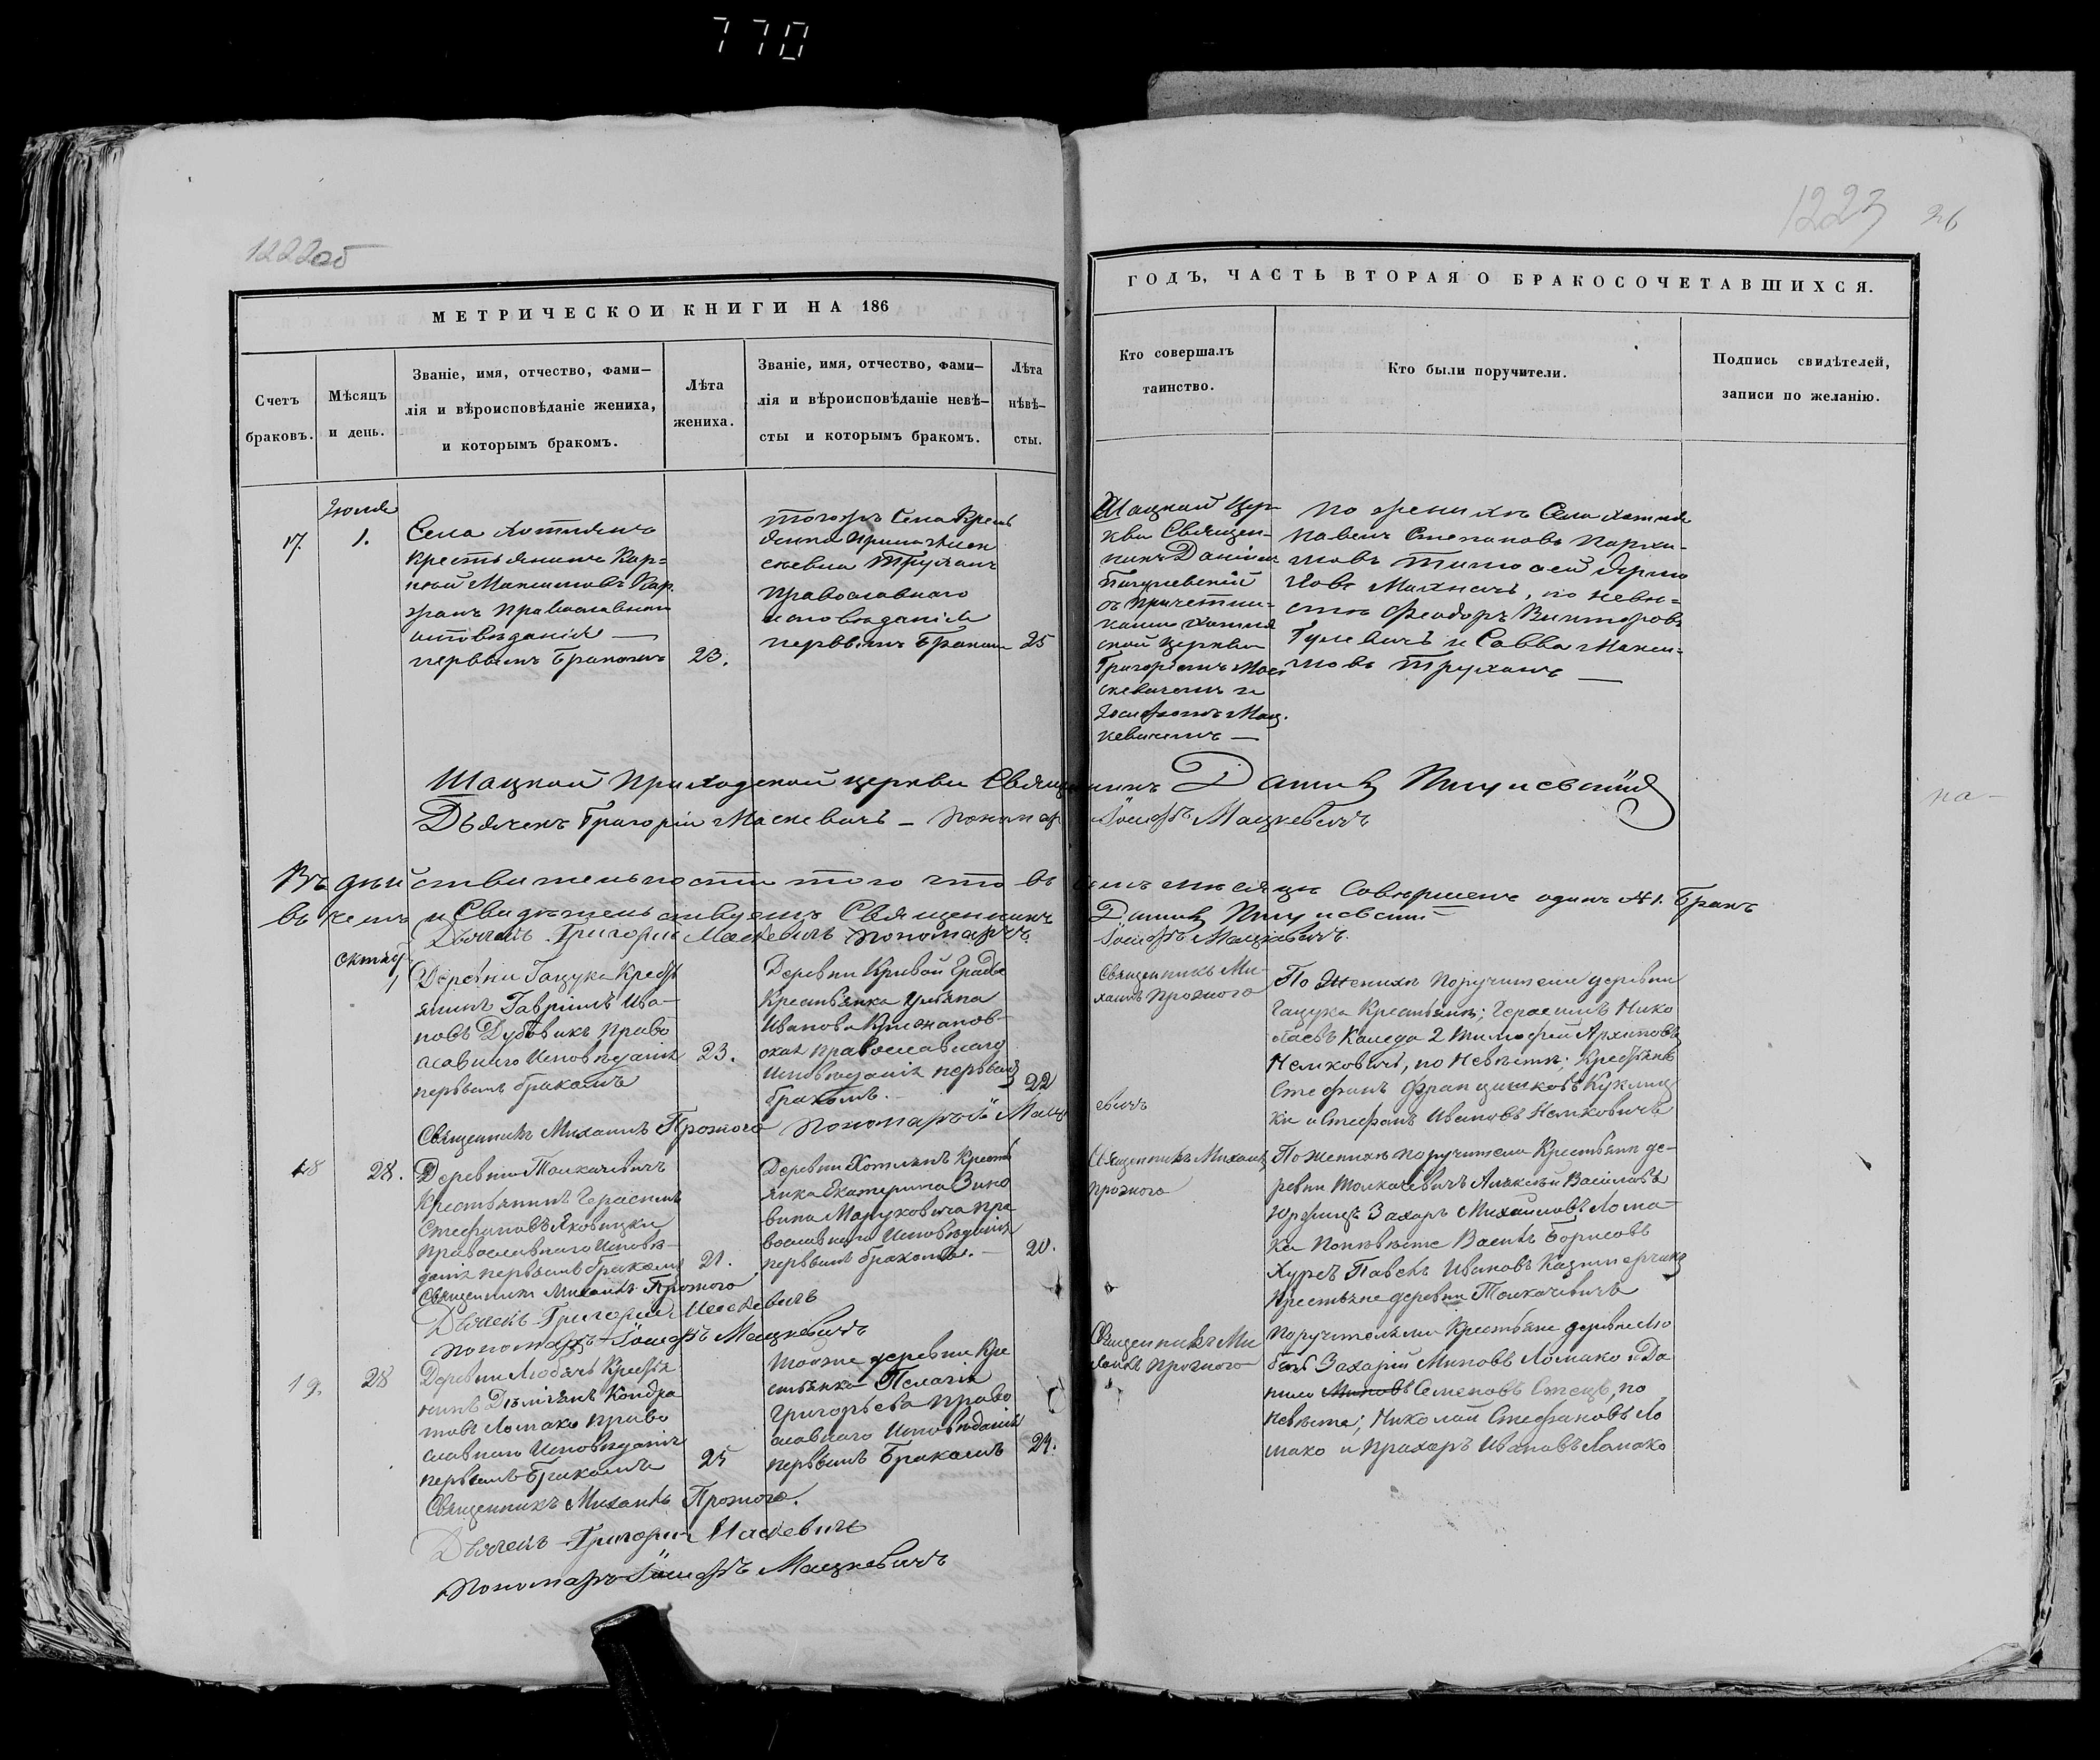 770
1222об
1223 26
МЕТРИЧЕСКОЙ КНИГИ НА 186
ГОДЪ, ЧАСТЬ ВТОРАЯ О БРАКОСОЧЕТАВШИХСЯ.
Счетъ
браковъ.
Мѣсяцъ
и день.
Званіе, имя, отчество, фами-
лія и вѣроисповѣданіе жениха,
и которымъ бракомъ.
Лѣта
жениха.
Званіе, имя, отчество, фами-
лія и вѣроисповѣданіе невѣ-
сты и которымъ бракомъ.
Лѣта
нѣвѣ-
сты.
Кто совершалъ
таинство.
Кто были поручители.
Подпись свидѣтелей,
записи по желанію.
17.
1.
Села Хотлянъ
Крестьянинъ Кар-
пей Максимовъ
Православнаго
исповѣданія
первымъ бракомъ
23.
тогожъ Села Крест
янка
Труханъ
Православнаго
исповѣданія
первымъ бракомъ
25
Шацкой Цер-
кви Священ-
никъ Даніилъ
Пигулевскій
съ причетни-
ками
ской Церкви
Григоріемъ Мас
кевичемъ и
Іосифомъ Мац-
кевичемъ
по женихѣ Села
Павелъ Степановъ
мовъ Тимофей
по невѣ-
стѣ Феодоръ Викторовъ
Гулевичъ и Савва Макси-
мовъ Труханъ
Шацкой Приходской церкви Священникъ Даніилъ Пигулевскій
Дьячекъ Григорій Маскевичъ - Пономарь Іосифъ Мацкевичъ
на-
Въ дѣйствительности того что въ семъ мѣсяцѣ Совершенъ одинъ №1. Бракъ
въ чемъ и Свидѣтельствуемъ Священникъ Даніилъ Пигулевскій
Дьячекъ Григорій Маскевичъ Пономарь Іосифъ Мацкевичъ.
Деревни Гацука Крест
янинъ Гавріилъ Ива-
новъ Дубовикъ Право
славнаго Исповѣданія
первымъ бракомъ
23.
Деревни Кривой Гряды
Крестьянка Ульяна
Иванова
ская православнаго
Исповѣданія первымъ
бракомъ.
22
Священникъ Ми-
хаилъ Прожого
По Женихѣ Поручители деревни
Гацука Крестьяне; Герасимъ Нико
лаевъ Каледа 2 Тимофей Архиповъ
Немковичъ, по Невѣстѣ; Крестьяне
Стефанъ Францишковъ
и Стефанъ Ивановъ Немковичъ
Священникъ Михаилъ Прожого Пономарь И Мацк
евичъ
18
28.
Деревни Толкачевичъ
Крестьянинъ Герасимъ
Стефановъ Яковицкій
Православнаго Исповѣ-
данія первымъ бракомъ
21.
Деревни Хотлянъ Крестьян
янка Екатерина Зино
вина
православнаго Исповѣданія
первымъ бракомъ.
20.
Священникъ Михаилъ
Прожого
По женихѣ поручители Крестьяне де-
ревни Толкачевичъ Алексѣй Васильевъ
Захаръ Михайловъ Лома-
ка По невѣстѣ Василь Борисовъ
Павелъ Ивановъ
Крестьяне деревни Толкачевичъ
Священникъ Михаилъ Прожого
Дьячекъ Григорій Маскевичъ
Пономарь Іосифъ Мацкевичъ
19.
28
Деревни Любячъ Крестья
нинъ Дѣміянъ Кондра
товъ Ломако Право
славнаго Исповѣданія
первымъ Бракомъ
25
Тойже деревни Кре
стьянка Пелагія
Григорьева Право
славнаго Исповѣданія
первымъ Бракомъ
24.
Священникъ Ми
хаилъ Прожого
Поручители Крестьяне деревни Лю
бячъ Захарій Миновъ Ломако и Да
нило Миновъ Семеновъ Стецъ, по
невѣстѣ; Николай Стефановъ Ло
мако и Прохоръ Ивановъ Ломако
Священникъ Михаилъ Прожого.
Дьячекъ Григорій Маскевичъ
Пономарь Іосифъ Мацкевичъ